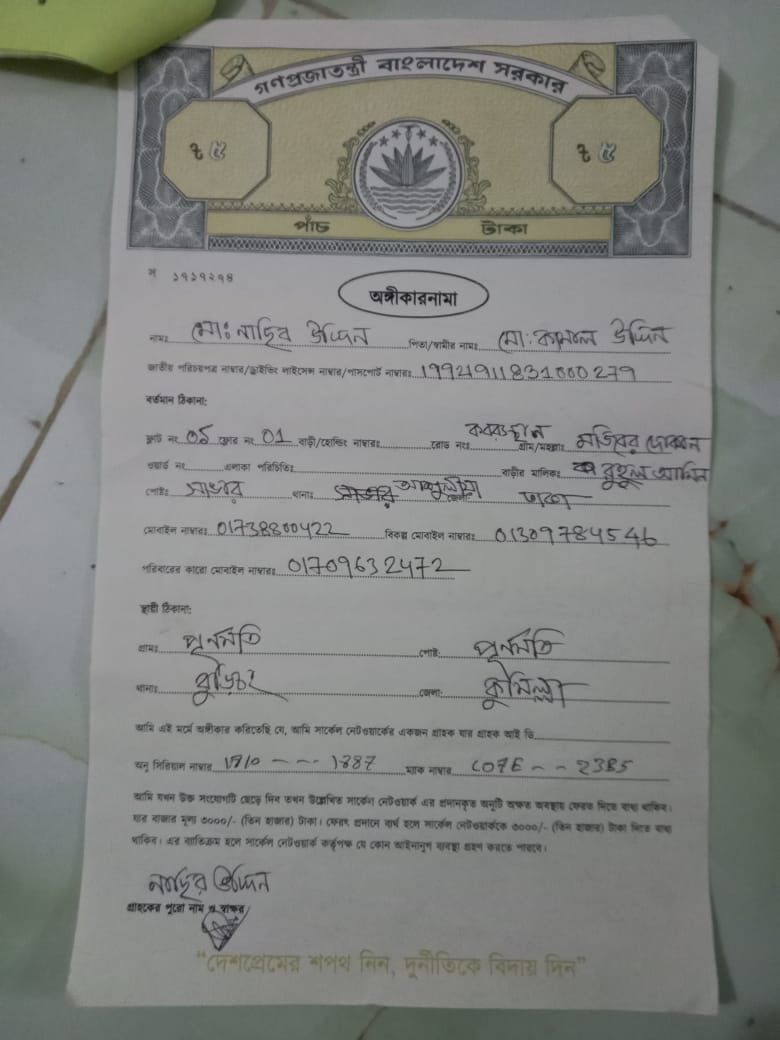 গণপ্রজাতন্ত্রী বাংলাদেশ সরকার
৳ ৫ ৳ ৫
পাঁচ টাকা
অঙ্গীকারনামা
নামঃ মোঃ নাছির উদ্দিন পিতা/স্বামীর নামঃ মো: কামাল উদ্দিন
জাতীয় পরিচয়পত্র নাম্বার/ড্রাইভিং লাইসেন্স নাম্বার/পাসপোর্ট নাম্বারঃ 1994911831000279
বর্তমান ঠিকানা:
ফ্লাট নং 05 ফ্লোর নং 01 বাড়ী/হোল্ডিং নাম্বারঃ রোড নংঃ কবরস্থান গ্রাম/মহল্লাঃ মজিবর দোকান
ওয়ার্ড নং এলাকা পরিচিতিঃ বাড়ীর মালিকঃ রুহুল আমিন
পোষ্টঃ সাভার থানাঃ আশুলীয়া জেলাঃ ঢাকা
মোবাইল নাম্বারঃ 01738800422 বিকল্প মোবাইল নাম্বারঃ 01309784546
পরিবারের কারো মোবাইল নাম্বারঃ 01709632472
স্থায়ী ঠিকানা:
গ্রামঃ পূর্নমতি পোষ্টঃ পূর্নমতি
থানাঃ বুড়িচং জেলাঃ কুমিল্লা
আমি এই মর্মে অঙ্গীকার করিতেছি যে, আমি সার্কেল নেটওয়ার্কের একজন গ্রাহক যার গ্রাহক আই ডি
অনু সিরিয়াল নাম্বার 1387 ম্যাক নাম্বার C07E -- 23B5
আমি যখন উক্ত সংযোগটি ছেড়ে দিব তখন উল্লেখিত সার্কেল নেটওয়ার্ক এর প্রদানকৃত অনুটি অক্ষত অবস্থায় ফেরত দিতে বাধ্য থাকিব।
যার বাজার মূল্য ৩০০০/- (তিন হাজার) টাকা। ফেরৎ প্রদানে ব্যর্থ হলে সার্কেল নেটওয়ার্ককে ৩০০০/- (তিন হাজার) টাকা দিতে বাধ্য
থাকিব। এর ব্যতিক্রম হলে সার্কেল নেটওয়ার্ক কর্তৃপক্ষ যে কোন আইনানুগ ব্যবস্থা গ্রহণ করতে পারবে।
নাছির উদ্দিন
গ্রাহকের পুরো নাম ও স্বাক্ষর
“দেশপ্রেমের শপথ নিন, দুর্নীতিকে বিদায় দিন”